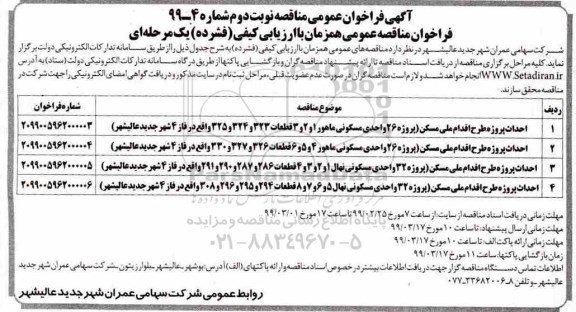 آگهی فراخوان عمومی مناقصه نوبت دوم شماره ۴-۹۹
فراخوان مناقصه عمومی همزمان با ارزیابی کیفی (فشرده) یک مرحله‌ای
شرکت سهامی عمران شهر جدید عالیشهر در نظر دارد مناقصه‌های عمومی همزمان با ارزیابی کیفی (فشرده) به شرح جدول ذیل را از طریق سامانه تدارکات الکترونیکی دولت برگزار
نماید. کلیه مراحل برگزاری مناقصه از دریافت اسناد مناقصه تا ارائه پیشنهاد مناقصه‌گران و بازگشایی پاکتها از طریق درگاه سامانه تدارکات الکترونیکی دولت (ستاد) به آدرس
WWW.Setadiran.ir انجام خواهد شد و لازم است مناقصه‌گران در صورت عدم عضویت قبلی، مراحل ثبت نام در سایت مذکور و دریافت گواهی امضای الکترونیکی را جهت شرکت در
مناقصه محقق سازند.
ردیف موضوع مناقصه شماره فراخوان
۱ احداث پروژه طرح اقدام ملی مسکن (پروژه ۲۶ واحدی مسکونی ماهور ۱ و ۲ و ۳ قطعات ۳۲۳ و ۳۲۴ و ۳۲۵ واقع در فاز ۴ شهر جدید عالیشهر) ۲۰۹۹۰۰۵۹۶۲۰۰۰۰۰۳
۲ احداث پروژه طرح اقدام ملی مسکن (پروژه ۲۶ واحدی مسکونی ماهور ۴ و ۵ و ۶ قطعات ۳۲۶ و ۳۲۷ و ۳۳۰ واقع در فاز ۴ شهر جدید عالیشهر) ۲۰۹۹۰۰۵۹۶۲۰۰۰۰۰۴
۳ احداث پروژه طرح اقدام ملی مسکن (پروژه ۳۲ واحدی مسکونی نهال ۱ و ۲ و ۳ و ۴ قطعات ۲۸۶ و ۲۸۷ و ۲۹۰ و ۲۹۱ واقع در فاز ۴ شهر جدید عالیشهر) ۲۰۹۹۰۰۵۹۶۲۰۰۰۰۰۵
۴ احداث پروژه طرح اقدام ملی مسکن (پروژه ۳۲ واحدی مسکونی نهال ۵ و ۶ و ۷ و ۸ قطعات ۲۹۴ و ۲۹۵ و ۲۹۶ و ۳۰۸ واقع در فاز ۴ شهر جدید عالیشهر) ۲۰۹۹۰۰۵۹۶۲۰۰۰۰۰۶
مهلت زمانی دریافت اسناد مناقصه از سایت: از ساعت ۷ مورخ ۹۹/۰۲/۲۵ تا ساعت ۱۷ مورخ ۹۹/۰۳/۰۱
مهلت زمانی ارسال پیشنهاد: تا ساعت ۱۰ مورخ ۹۹/۰۳/۱۷
مهلت زمانی ارائه پاکت الف: تا ساعت ۱۰ مورخ ۹۹/۰۳/۱۷
زمان بازگشایی پاکتها: ساعت ۱۱ مورخ ۹۹/۰۳/۱۷
پایگاه اطلاع رسانی مناقصه و مزایده
۰۲۱-۸۸۳۴۹۶۷۰-۵
اطلاعات تماس دستگاه مناقصه گزار جهت دریافت اطلاعات بیشتر در خصوص اسناد مناقصه و ارائه پاکتهای (الف) آدرس: بوشهر_عالیشهر_بلوار زیتون_شرکت سهامی عمران شهر جدید
عالیشهر_و تلفن ۸_۳۳۶۸۲۰۰۶_۰۷۷
روابط عمومی شرکت سهامی عمران شهر جدید عالیشهر